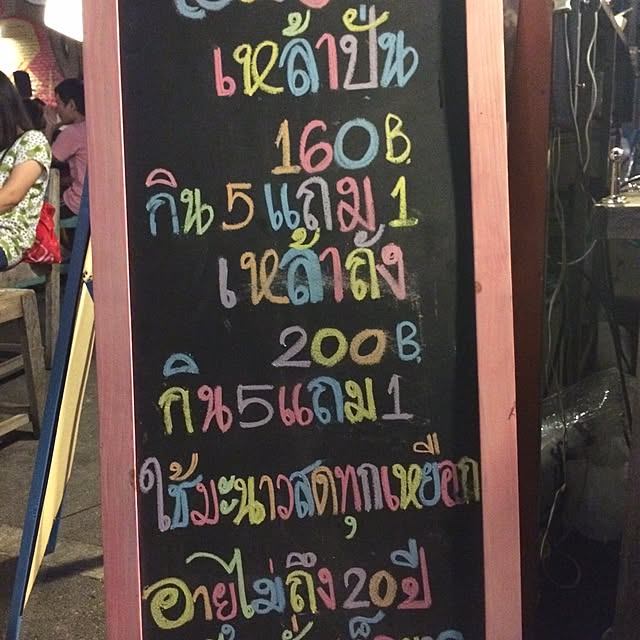 เหล้าปั่น
160 B.
กิน 5 แถม 1
เหล้าถัง
200 B.
กิน 5 แถม 1
ใช้มะนาวสดทุกเหยือก
อายุไม่ถึง 20 ปี